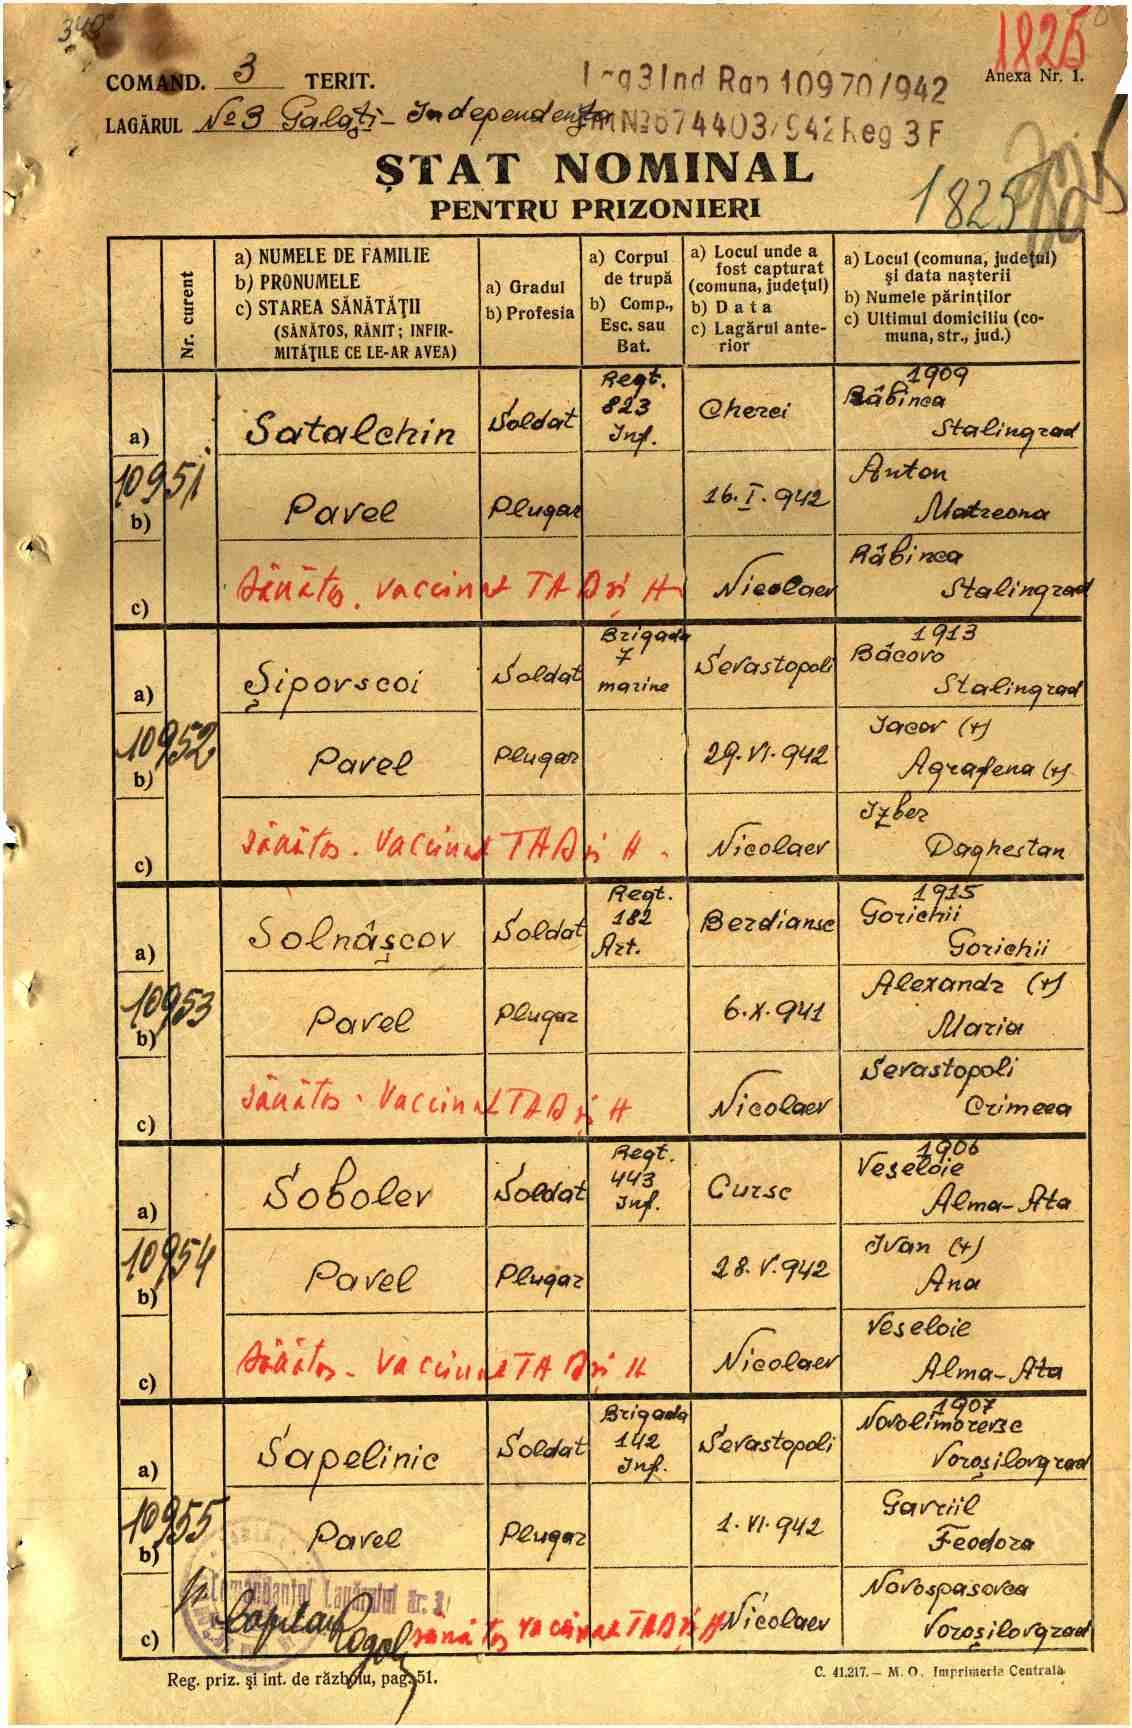 340
1825
COMAND. 3 TERIT.
Anexa Nr. 1.
10970/942
LAGĂRUL No 3 Galați - Independența
No 674403/942 Reg 3 F
ȘTAT NOMINAL
PENTRU PRIZONIERI
1825
Nr. curent
a) NUMELE DE FAMILIE
b) PRONUMELE
c) STAREA SĂNĂTĂȚII
(SĂNĂTOS, RĂNIT; INFIR-
MITĂȚILE CE LE-AR AVEA)
a) Gradul
b) Profesia
a) Corpul
de trupă
b) Comp.,
Esc. sau
Bat.
a) Locul unde a
fost capturat
(comuna, județul)
b) Data
c) Lagărul ante-
rior
a) Locul (comuna, județul)
și data nașterii
b) Numele părinților
c) Ultimul domiciliu (co-
muna, str., jud.)
10951
a) Satalchin Soldat Regt. 823 Inf. Cherci 1909 Râbinca Stalingrad
b) Pavel Plugar 16.I.942 Anton Matreona
c) Sănătos. vaccinat TAB și H Nicolaev Râbinca Stalingrad
10952
a) Șiporscoi Soldat Brigada 7 marine Sevastopoli 1913 Bâcovo Stalingrad
b) Pavel Plugar 29.VI.942 Iacov (+) Agrafena (+)
c) Sănătos. Vaccinat TAB și H. Nicolaev Izber Daghestan
10953
a) Solnâșcov Soldat Regt. 182 Art. Berdiansc 1915 Gorichii Gorichii
b) Pavel Plugar 6.X.941 Alexandr (+) Maria
c) Sănătos. Vaccinat TAB și H Nicolaev Sevastopoli Crimeea
10954
a) Sobolev Soldat Regt. 443 Inf. Cursc 1906 Veseloie Alma-Ata
b) Pavel Plugar 28.V.942 Ivan (+) Ana
c) Sănătos. Vaccinat TAB și H Nicolaev Veseloie Alma-Ata
10955
a) Sapelinic Soldat Brigada 142 Inf. Sevastopoli 1907 Novolimorevsc Voroșilovgrad
b) Pavel Plugar 1.VI.942 Gavriil Feodora
c) Sănătos vaccinat TAB și H Nicolaev Novospasovca Voroșilovgrad
Comandantul Lagărului Nr. 3
Căpitan
Reg. priz. și int. de războiu, pag. 51.
C. 41.217. — M. O. Imprimeria Centrală